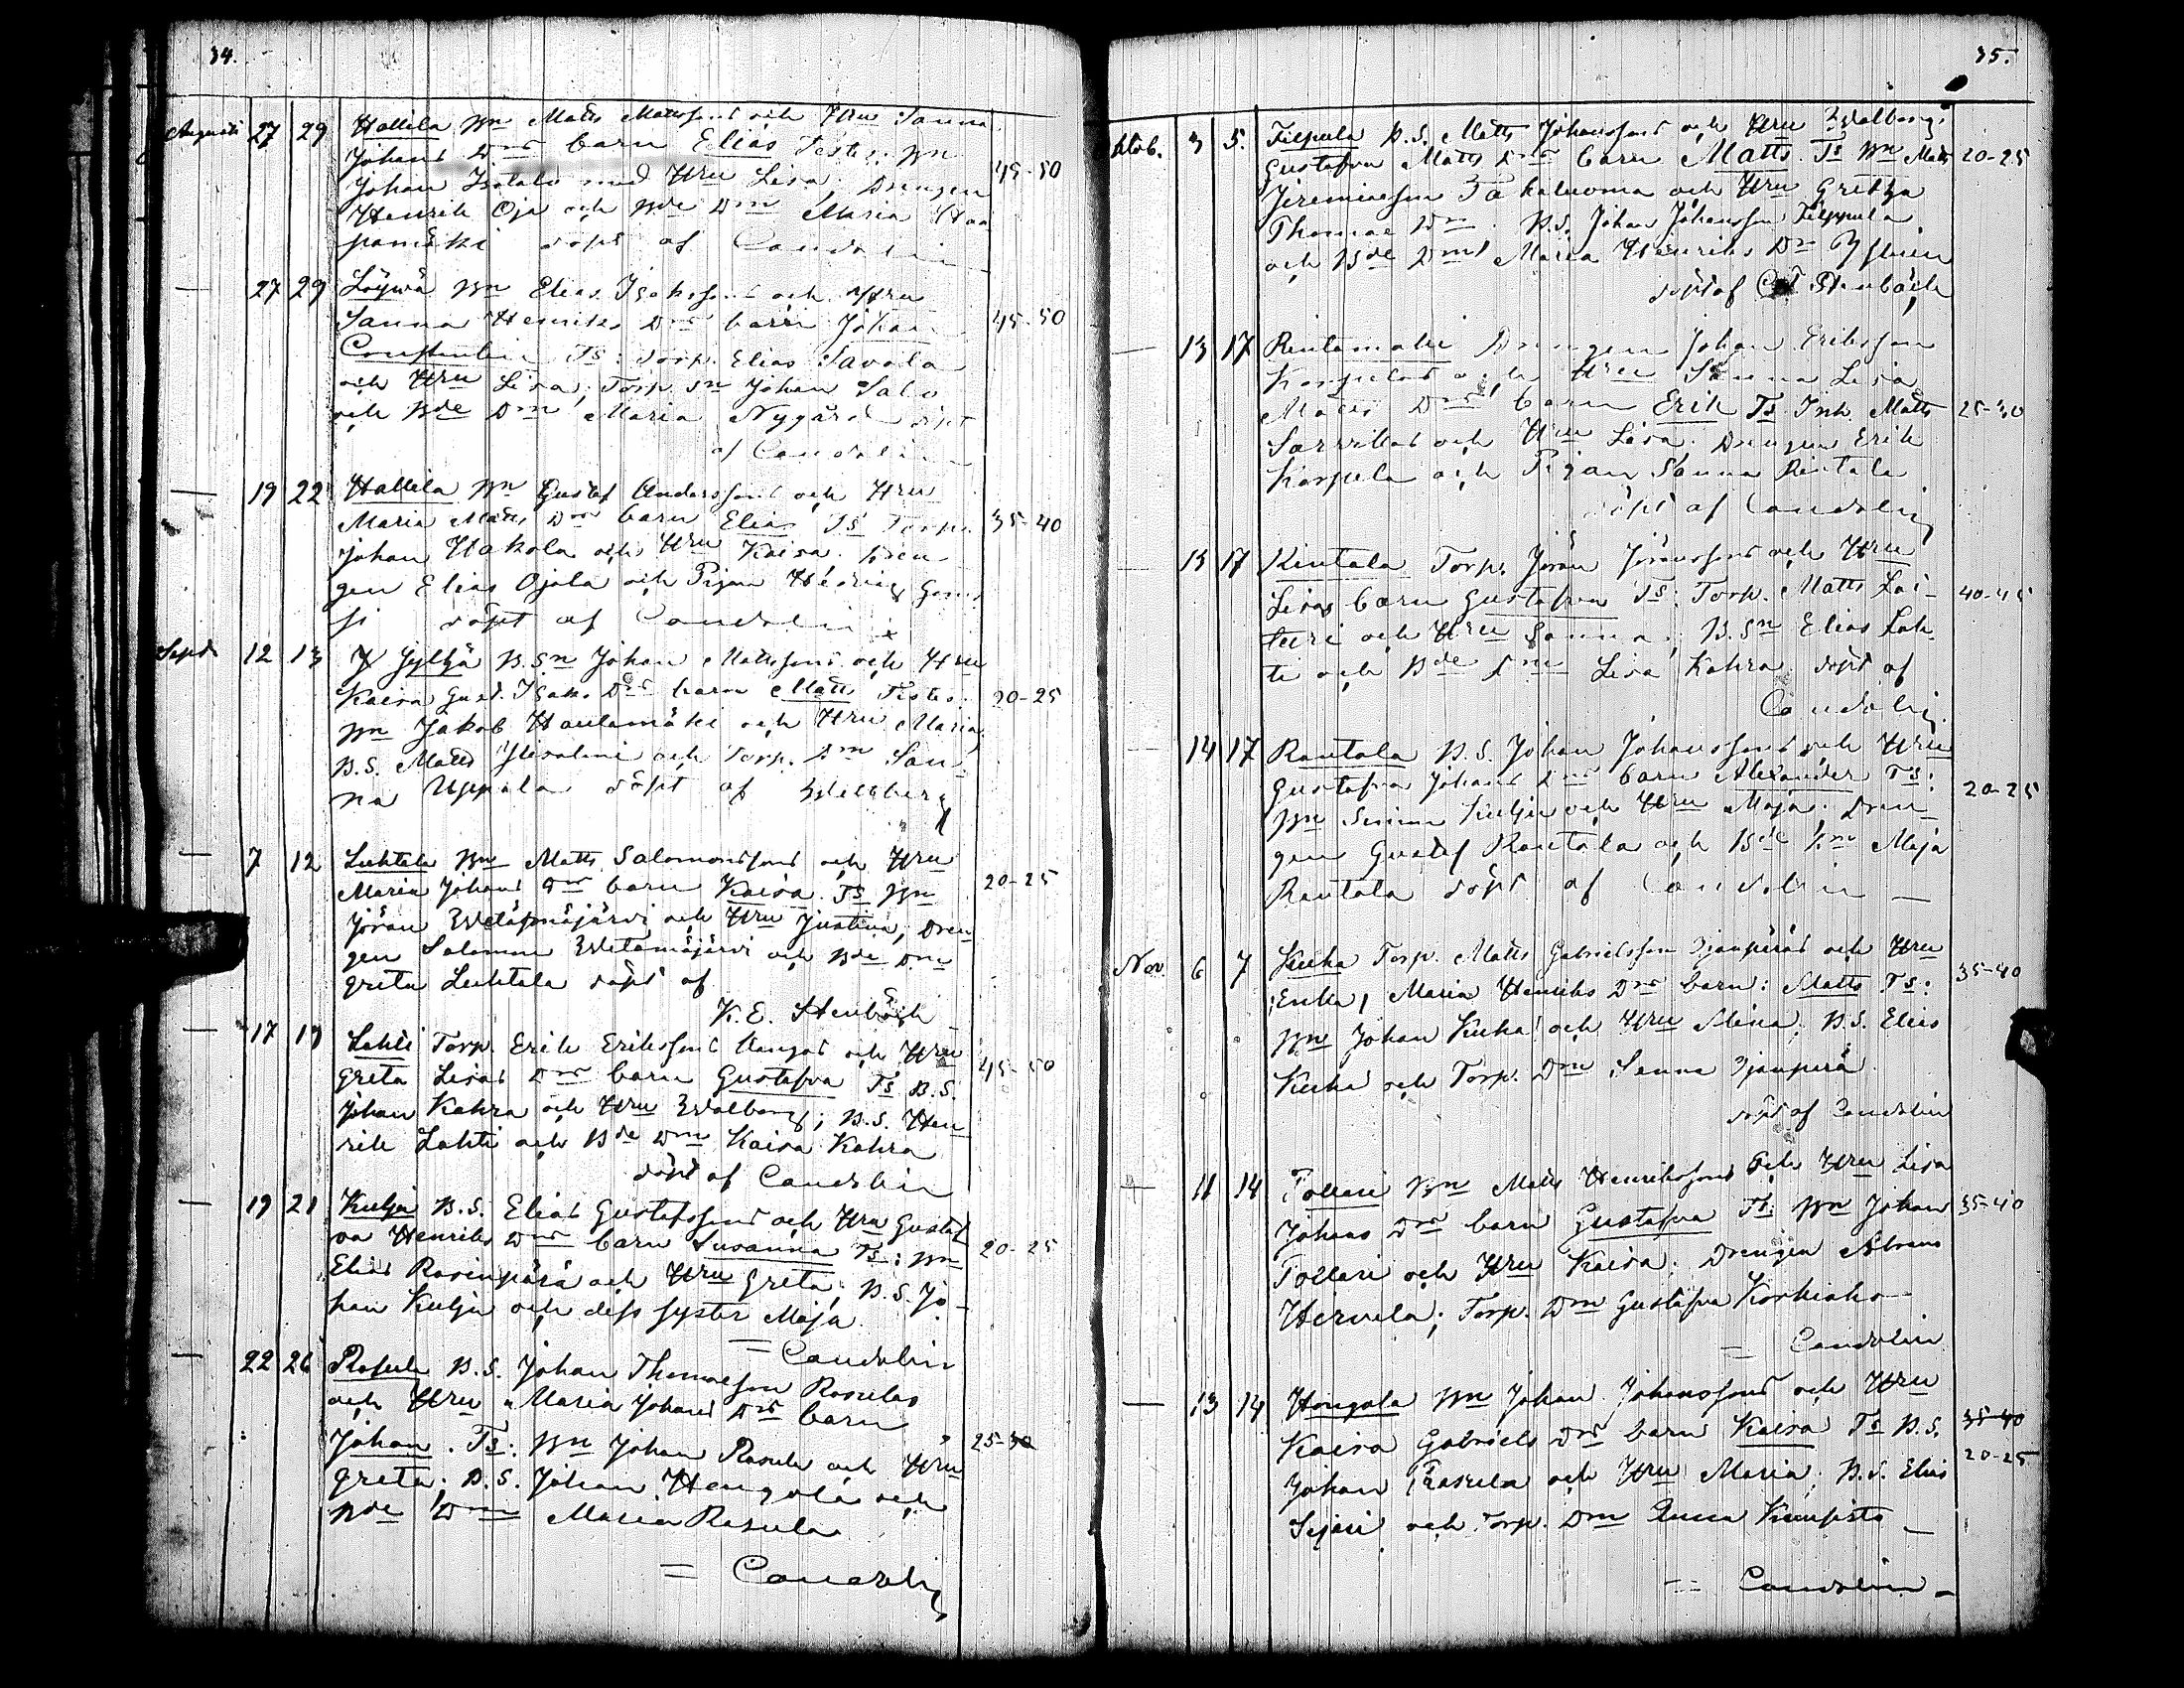 34.
Augusti 27 29 Hallila Bn Matts Mattssons och Hru Sanna
Johans Drs barn Elias Testes: Bn
Johan Isotalo med Hru Lisa; Drengen 45-50
Henrik Oja och Bde Dm Maria Haa
pamäki döpt af Candolin
— 27 29 Löywä Bn Elias Isakssons och Hru
Sanna Henriks Drs barn Johan 45-50
Constantin Ts: Torp. Elias Savola
och Hru Lisa; Torp. Sn Johan Salo
och Bde Dm Maria Nygård döpt
af Candolin
— 19 22 Hallila Bn Gustaf Anderssons och Hru
Maria Matts Drs barn Elias Ts Torp. 35-40
Johan Hakola och Hru Kaisa. Dren-
gen Elias Ojala och Pigan Hedvig
döpt af Candolin
Sept. 12 13 Jyljä B.Sn Johan Mattssons och Hru
Kaisa Gust. Isaks Drs barn Matts Testes: 20-25
Bn Jakob Hautamäki och Hru Maria,
B.S. Matts och Torp. Dm San-
na Uppala döpt af Wellberg
— 7 12 Luhtala Bn Matts Salomonssons och Hru
Maria Johans Drs barn Kaisa. Ts Bn 20-25
Jöran och Hru Justina, Dren
gen Salomon Wetämäjärvi och Bde Dm
Greta Luhtala döpt af
K. E. Stenbäck
— 17 19 Lahti Torp. Erik Erikssons Kangas och Hru
Greta Lisas Drs barn Gustafva Ts B.S. 45-50
Johan Kahra och Hru Walborg; B.S. Hen
rik Lahti och Bde Dm Kaisa Kahra
döpt af Candolin
— 19 21 Kulju B.S. Elias Gustafssons och Hru Gustaf
va Henriks Drs barn Susanna Ts: Bn 20-25
Elias Rasinperä och Hru Greta; B.S. Jo-
han Kulju och dess syster Maja
= Candolin
— 22 26 Rasula B.S. Johan Thomasson Rasulas
och Hru Maria Johans Drs barn
Johan. Ts: Bn Johan Rasula och Hru 25-30
Greta; B.S. Johan Hongola och
Bde Dm Maria Rasula
= Candolin
35.
Oktob. 3 5. Filpula B.S. Matts Johanssons och Hru Walborg
Gustafva Matts Drs barn Matts. Ts Bn Matts 20-25
Jeremiasson och Hru Greta
Thomae Dr. B.S. Johan Johansson Filppula
och Bde Dm Maria Henriks Dr
döpt af Stenbäck
— 13 17 Rintamäki Drengen Johan Eriksson
Korpelas och Hru Sanna Lisa
Matts Drs barn Erik Ts Inh. Matts 25-30
Sarvikas och Hru Lisa; Drengen Erik
Korpela och Pigan Sanna Rintala
döpt af Candolin
13 17 Rintala Torp. Jöran Jöranssons och Hru
Lisas barn Gustafva Ts: Torp. Matts Lai- 40-45
turi och Hru Sanna; B.Sn Elias Lah
ti och Bde Dm Lisa Kahra döpt af
Candolin
14 17 Rantala B.S. Johan Johanssons och Hru
Gustafva Johans Drs barn Alexander Ts: 20-25
Bn Simon Kulju och Hru Maja; Dren-
gen Gustaf Rantala och Bde Dm Maja
Rantala döpt af Candolin —
Nov. 6 7 Kuha Torp. Matts Gabrielsson och Hru
Maria Henriks Drs barn: Matts Ts: 35-40
Bn Johan Kuha och Hru Mina; B.S. Elias
Kuha och Torp. Dm Sanna
döpt af Candolin
11 14 Tollari Bn Matts Henrikssons och Hru Lisa
Johans Drs barn Gustafva Ts: Bn Johan 35-40
Tollari och Hru Kaisa; Drengen Abram
Hirvela; Torp. Dm Gustafva Korkiaho
= Candolin
— 13 14 Hongola Bn Johan Johanssons och Hru
Kaisa Gabriels Drs barn Kaisa Ts B.S. 35-40
Johan Rasula och Hru Maria; B.S. Elias 20-25
och Torp. Dm Anna
= Candolin —